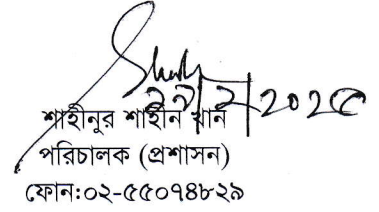 ২৭/২/২০২৫
শাহীনুর শাহীন খান
পরিচালক (প্রশাসন)
ফোন:০২-৫৫০৭৪৮২৯